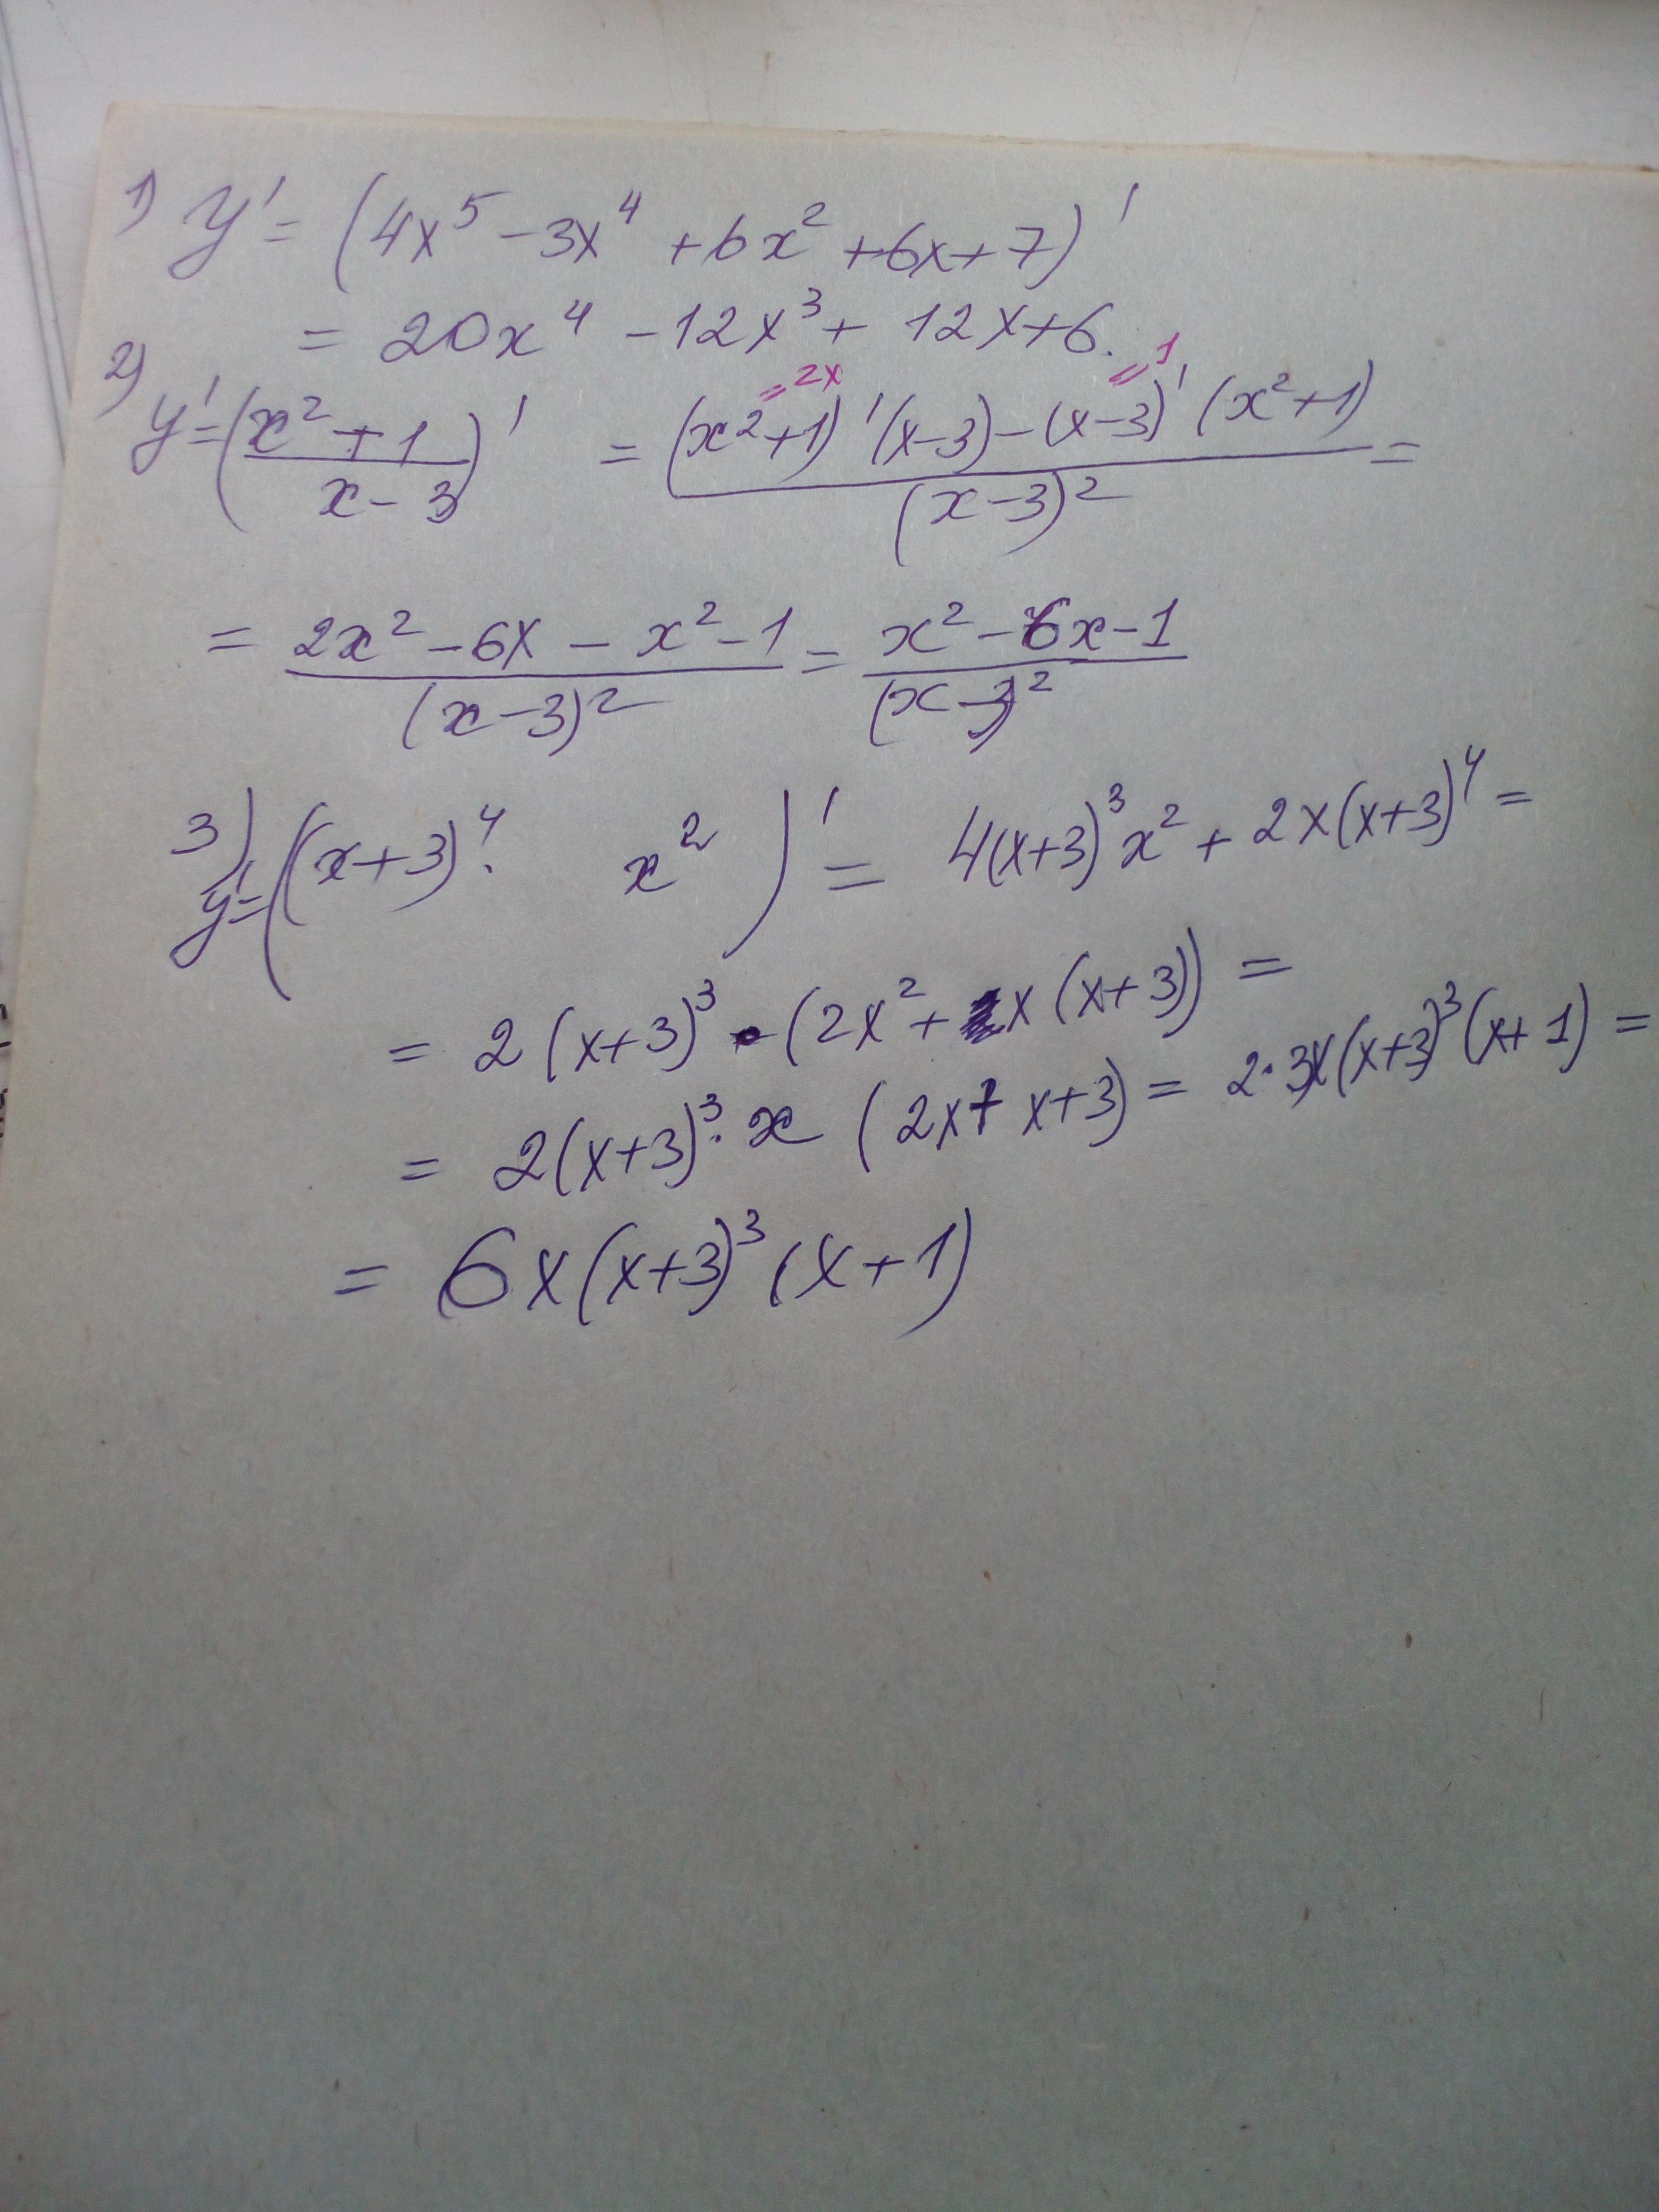 1) y' = (4x⁵ - 3x⁴ + 6x² + 6x + 7)'
= 20x⁴ - 12x³ + 12x + 6.
= 2x = 1
2) y' = ((x² + 1)/(x - 3))' = ((x² + 1)'(x - 3) - (x - 3)'(x² + 1))/(x - 3)² =
= (2x² - 6x - x² - 1)/(x - 3)² = (x² - 6x - 1)/(x - 3)²
3) y' = ((x + 3)⁴ · x²)' = 4(x + 3)³x² + 2x(x + 3)⁴ =
= 2(x + 3)³ · (2x² + x(x + 3)) =
= 2(x + 3)³ · x (2x + x + 3) = 2 · 3x(x + 3)³(x + 1) =
= 6x(x + 3)³(x + 1)